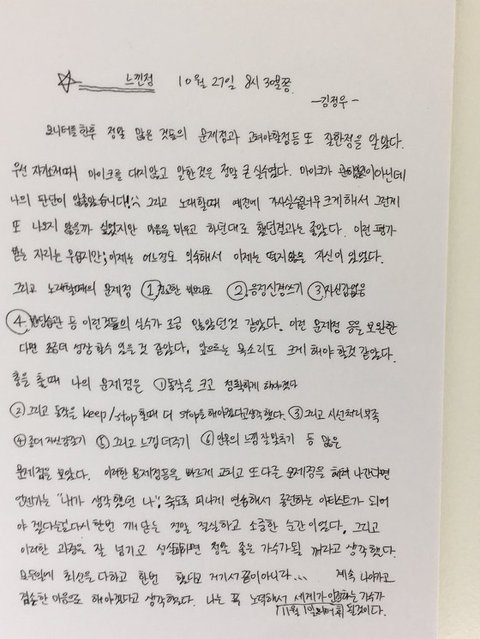 느낀점 10월 27일 8시 30분쯤
-김정우-
모니터를 한후 정말 많은 것들의 문제점과 고쳐야할점들 또 잘한점을 알았다.
우선 자기소개때 마이크를 대지않고 말한것은 정말 큰 실수였다. 마이크가 아닌데
나의 판단이 안좋았습니다!ㅆ 그리고 노래할때 예전에 자신 너무 크게해서 그런게
또 나오지 않을까 싶었지만 마음을 비우고 하던대로 했던결과는 좋았다. 이런 평가
받는 자리는 무섭지만, 이제는 어느정도 익숙해서 이제는 떨지않을 자신이 있었다.
그리고 노래할때의 문제점 ① ② 음정신경쓰기 ③ 자신감없음
④ 습관 등 이런것들의 실수가 조금 많았던것 같았다. 이런 문제점 들을 보완한
다면 조금더 성장 할수 있을것 같았다. 앞으로는 목소리도 크게 해야 할것 같았다.
춤을 출때 나의 문제점은 ① 동작을 크고 정확하게 해야겠다
② 그리고 동작을 keep/stop 할때 더 stop을 해야겠다고생각했다. ③ 그리고 시선처리부족
④ 좀더 자신감갖기 ⑤ 그리고 느낌 더주기 ⑥ 안무의 느낌 잘맞추기 등 많은
문제점을 보았다. 이러한 문제점들을 빠르게 고치고 또다른 문제점을 헤쳐 나간다면
언젠가는 "내가 생각했던 나", 죽도록 피나게 연습해서 공연하는 아티스트가 되어
야 겠다는걸 다시한번 깨닫는 정말 절실하고 소중한 순간이었다. 그리고
이러한 과정을 잘 넘기고 성숙하면 정말 좋은 가수가될 꺼라고 생각했다.
모든일에 최선을 다하고 한번 했다고 거기서 끝이아니라... 계속 나아가고
겸손한 마음으로 해야겠다고 생각했다. 나는 꼭 노력해서 세계가 인정하는 가수가
될것이다.
11월 1일